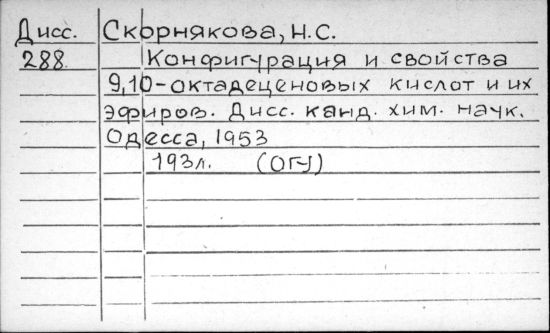 Дисс. Скорнякова, Н.С.
288 Конфигурация и свойства
9,10-октадеценовых кислот и их
эфиров. Дисс. канд. хим. наук.
Одесса, 1953
193л. (ОГУ)